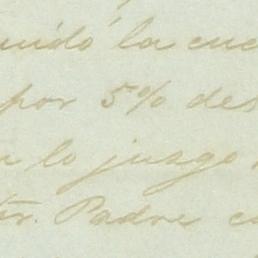 uidó la cue
por 5% des
lo juzgo
Padre